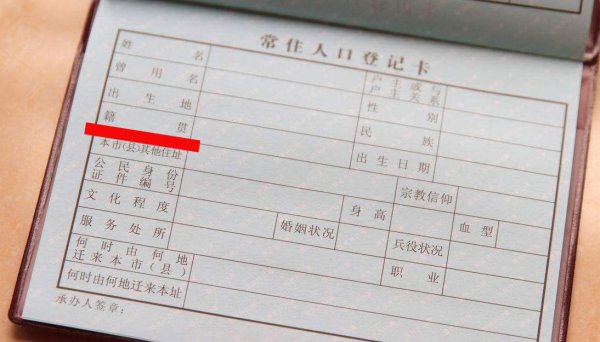 常住人口登记卡
姓名
户主或与户主关系
曾用名
性别
出生地
民族
籍贯
出生日期
本市(县)其他住址
宗教信仰
公民身份证件编号
身高
血型
文化程度
婚姻状况
兵役状况
服务处所
职业
何时由何地迁来本市(县)
何时由何地迁来本址
承办人签章: